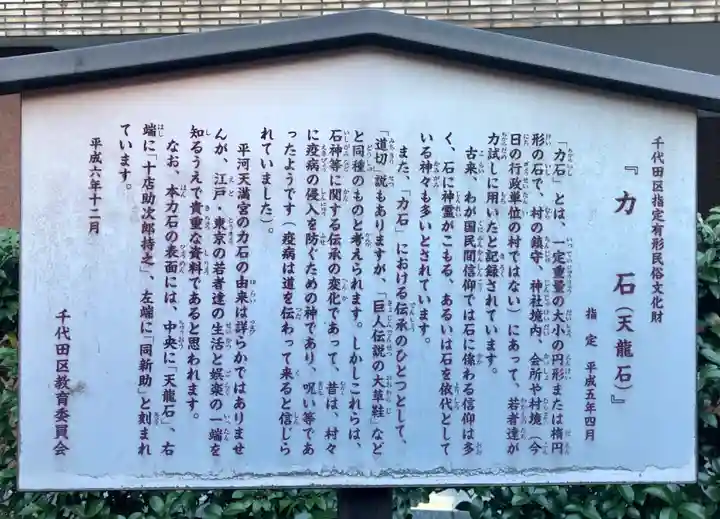 千代田区指定有形民俗文化財
『力 石（天龍石）』
指 定 平成五年四月
「力石」とは、一定重量の大小の円形または楕円
形の石で、村の鎮守、神社境内、会所や村境（今
日の行政単位の村ではない）にあって、若者達が
力試しに用いたと記録されています。
古来、わが国民間信仰では石に係わる信仰は多
く、石に神霊がこもる、あるいは石を依代として
いる神々も多いとされています。
また、「力石」における伝承のひとつとして、
「道切」説もありますが、「巨人伝説の大草鞋」など
と同種のものと考えられます。しかしこれらは、
石神等に関する伝承の変化であって、昔は、村々
に疫病の侵入を防ぐための神であり、呪い等であ
ったようです（疫病は道を伝わって来ると信じら
れていました）。
平河天満宮の力石の由来は詳らかではありませ
んが、江戸・東京の若者達の生活と娯楽の一端を
知るうえで貴重な資料であると思われます。
なお、本力石の表面には、中央に「天龍石」、右
端に「十店助次郎持之」、左端に「同新助」と刻まれ
ています。
平成六年十二月
千代田区教育委員会